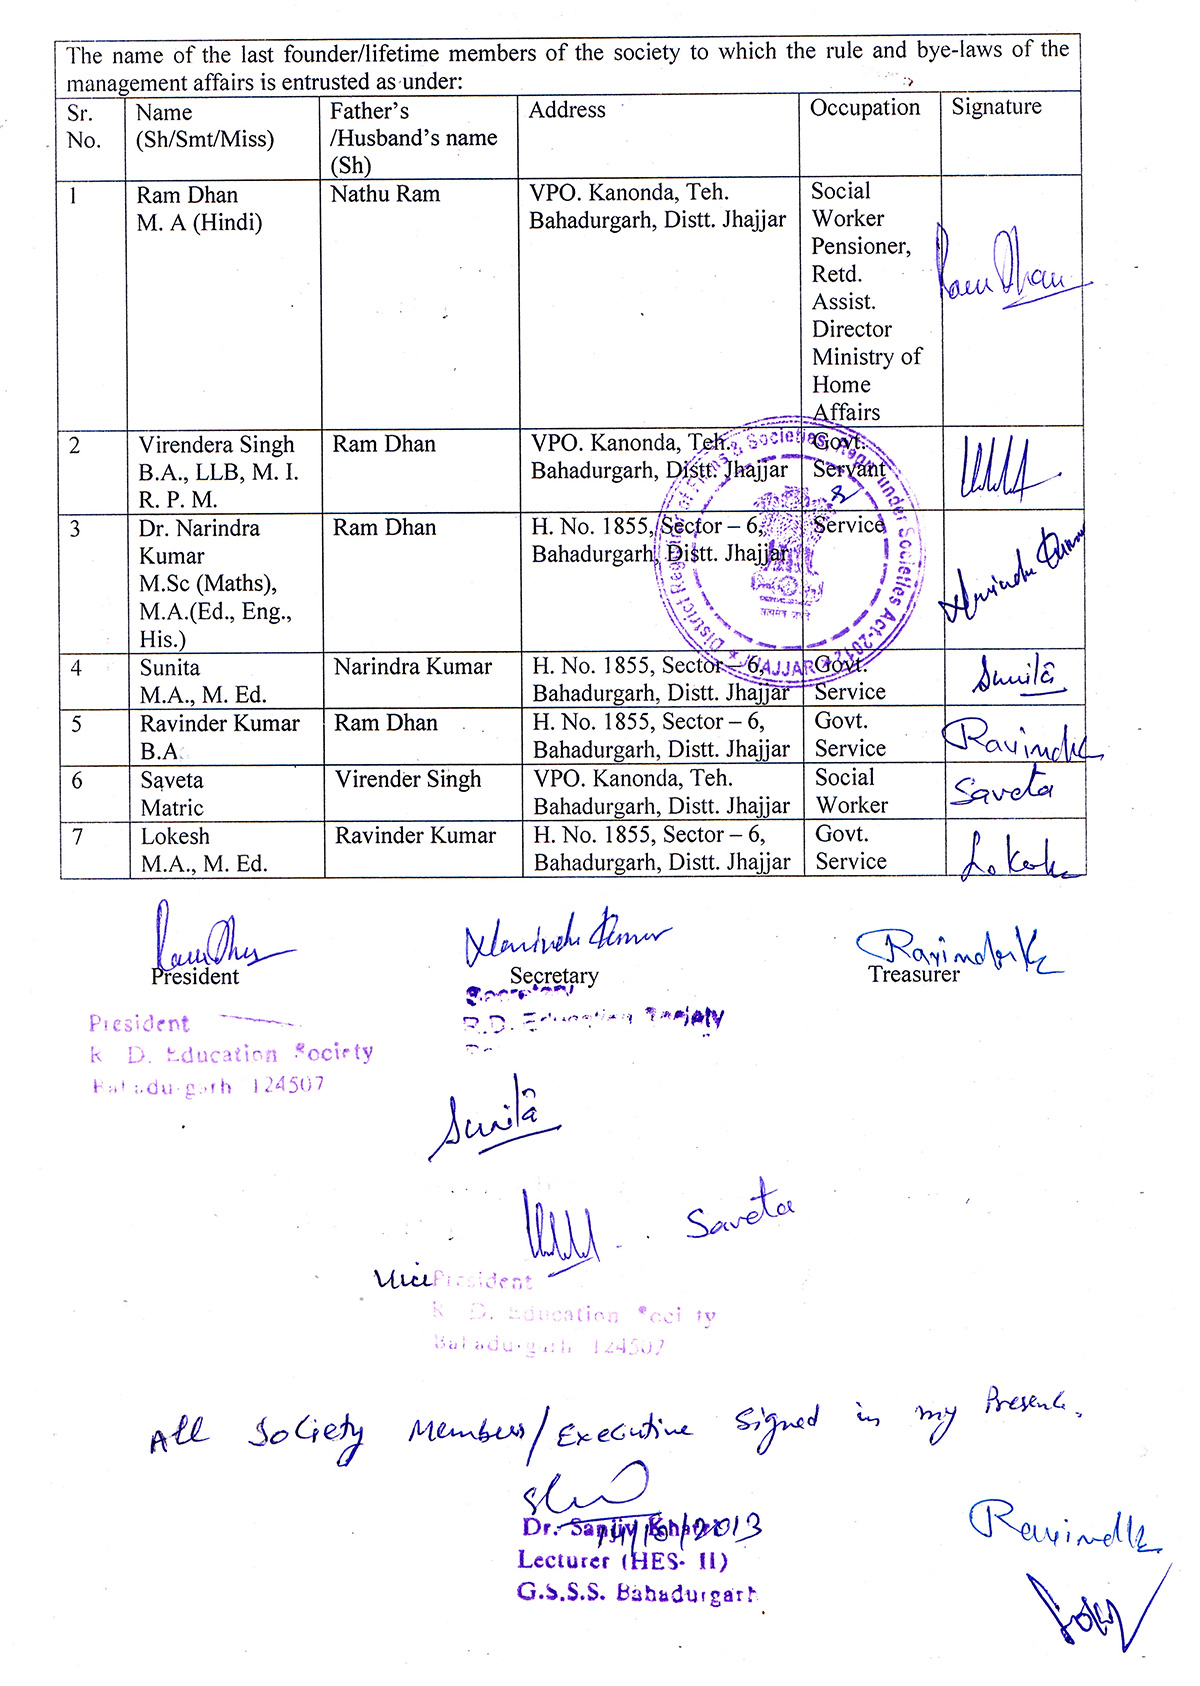 The name of the last founder/lifetime members of the society to which the rule and bye-laws of the
management affairs is entrusted as under:
Sr. No.
Name (Sh/Smt/Miss)
Father's /Husband's name (Sh)
Address
Occupation
Signature
1
Ram Dhan
M. A (Hindi)
Nathu Ram
VPO. Kanonda, Teh.
Bahadurgarh, Distt. Jhajjar
Social
Worker
Pensioner,
Retd.
Assist.
Director
Ministry of
Home
Affairs
Ram Dhan
2
Virendera Singh
B.A., LLB, M. I.
R. P. M.
Ram Dhan
VPO. Kanonda, Teh.
Bahadurgarh, Distt. Jhajjar
Govt.
Servant
3
Dr. Narindra
Kumar
M.Sc (Maths),
M.A.(Ed., Eng.,
His.)
Ram Dhan
H. No. 1855, Sector – 6,
Bahadurgarh, Distt. Jhajjar
Service
Narindra Kumar
District Registrar of Firms & Societies, Regn. under Societies Act-2012
JHAJJAR
सत्यमेव जयते
4
Sunita
M.A., M. Ed.
Narindra Kumar
H. No. 1855, Sector – 6,
Bahadurgarh, Distt. Jhajjar
Govt.
Service
Sunita
5
Ravinder Kumar
B.A
Ram Dhan
H. No. 1855, Sector – 6,
Bahadurgarh, Distt. Jhajjar
Govt.
Service
RavindK
6
Saveta
Matric
Virender Singh
VPO. Kanonda, Teh.
Bahadurgarh, Distt. Jhajjar
Social
Worker
Saveta
7
Lokesh
M.A., M. Ed.
Ravinder Kumar
H. No. 1855, Sector – 6,
Bahadurgarh, Distt. Jhajjar
Govt.
Service
Lokesh
Ram Dhan
Narindra Kumar
RavinderK
President
Secretary
Treasurer
President
R. D. Education Society
Bahadurgarh 124507
Secretary
R.D. Education Society
Sunita
Saveta
Vice President
R. D. Education Society
Bahadurgarh 124507
All Society Members/Executive Signed in my Presence.
Dr. Sanjiv Khatri
/2013
Lecturer (HES- II)
G.S.S.S. Bahadurgarh
RavindK